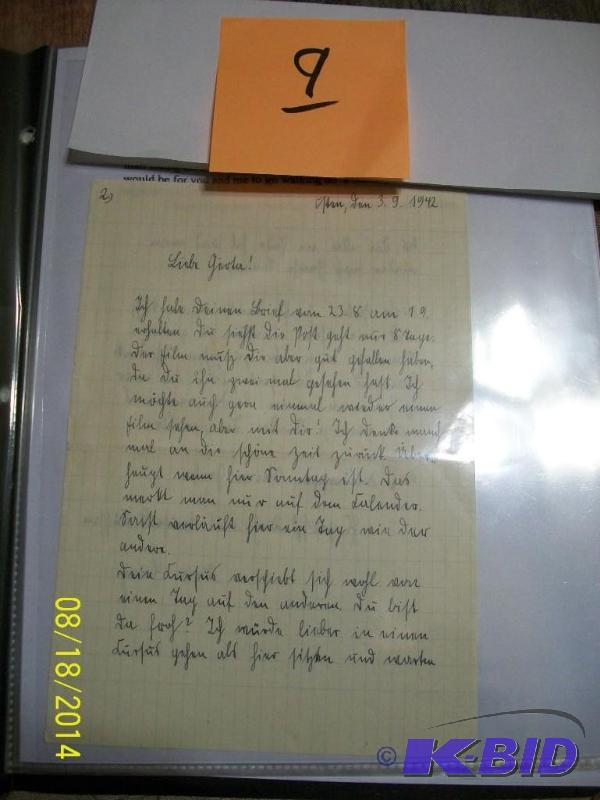 9
would be for you and me to go walking
2)
Osten, den 3.9.1942
Liebe Gerta!
Ich habe Deinen Brief vom 23.8. am 1.9.
erhalten. Du siehst die Post geht nur 8 Tage.
Der Film muß Dir aber gut gefallen haben,
da Du ihn zwei mal gesehen hast. Ich
möchte auch gern einmal wieder einen
Film sehen, aber mit Dir! Ich denke manch
mal an die schöne Zeit zurück. Über,
haupt wenn hier Sonntag ist. Das
merkt man nur auf dem Calender.
Sonst verläuft hier ein Tag wie der
andere.
Dein Cursus verschiebt sich wohl von
einem Tag auf den anderen. Du bist
da froh? Ich würde lieber in einen
Cursus gehen als hier sitzen und warten
08/18/2014
© K-BID